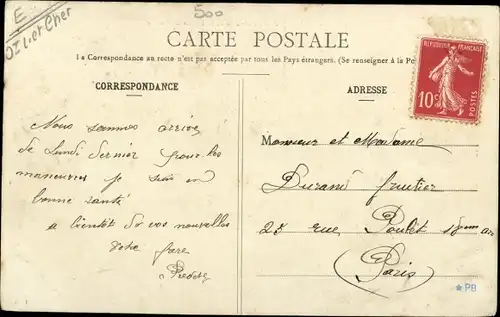 E
OI Let Cher
500
CARTE POSTALE
La Correspondance au recto n'est pas acceptée par tous les Pays étrangers. (Se renseigner à la Po
CORRESPONDANCE
ADRESSE
REPUBLIQUE FRANÇAISE
10c
POSTES
Nous sommes arrivés
de Lundi dernier pour les
maneuvres je suis en
bonne santé
a bientôt de vos nouvelles
votre frere
Monsieur et Madame
Durand fruitier
rue Poulet 18em arr
(Paris)
*PB